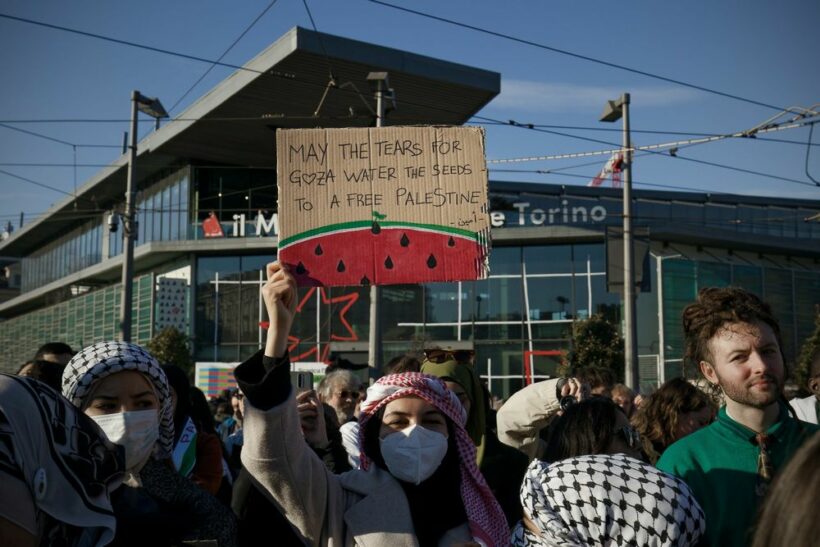 MAY THE TEARS FOR
G♡ZA WATER THE SEEDS
TO A FREE PALESTINE
il M e Torino